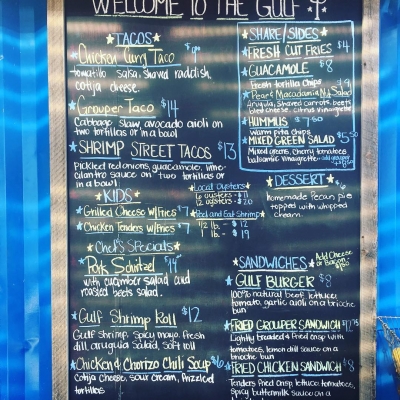 WELCOME TO THE GULF
TACOS
Chicken Curry Taco
tomatillo salsa, shaved raddish,
cotija cheese.
Grouper Taco $14
Cabbage Slaw, avocado aioli on
two tortillas or in a bowl
SHRIMP STREET TACOS $13
Pickled red onions, guacamole, lime-
cilantro sauce on two tortillas or
in a bowl
KIDS
Grilled Cheese w/Fries $7
Chicken Tenders w/Fries $7
Chef's Specials
Pork Schitzel $14
with cucumber salad and
roasted beets salad.
Gulf Shrimp Roll $12
Gulf Shrimp, Spicy mayo, fresh
dill, arugula salad, Soft roll
Chicken & Chorizo Chili Soup $6
Cotija cheese, sour cream, frizzled
tortillas
SHARE/SIDES
FRESH CUT FRIES $4
GUACAMOLE $8
Fresh tortilla chips
Pear & Macadamia Nut Salad $9
Arugula, Shaved carrots, beets
bleu cheese, citrus vinaigrette
HUMMUS $7.50
Warm pita chips
MIXED GREEN SALAD $5.50
Mixed greens, Cherry tomatoes
balsamic vinaigrette
Local Oysters
6 oysters - $11
12 oysters - $20
Peel and Eat Shrimp
1/2 lb. - $12
1 lb. - $19
DESSERT
homemade Pecan pie
topped with whipped
cream
SANDWICHES
Add Cheese
or Bacon
GULF BURGER $8
100% natural beef, lettuce,
tomato, garlic aioli on a brioche
bun
FRIED GROUPER SANDWICH $12.75
Lightly breaded & Fried crisp with
tomatoes, lemon dill sauce on a
brioche bun
FRIED CHICKEN SANDWICH $8
Tenders fried crisp, lettuce, tomatoes,
spicy buttermilk sauce on